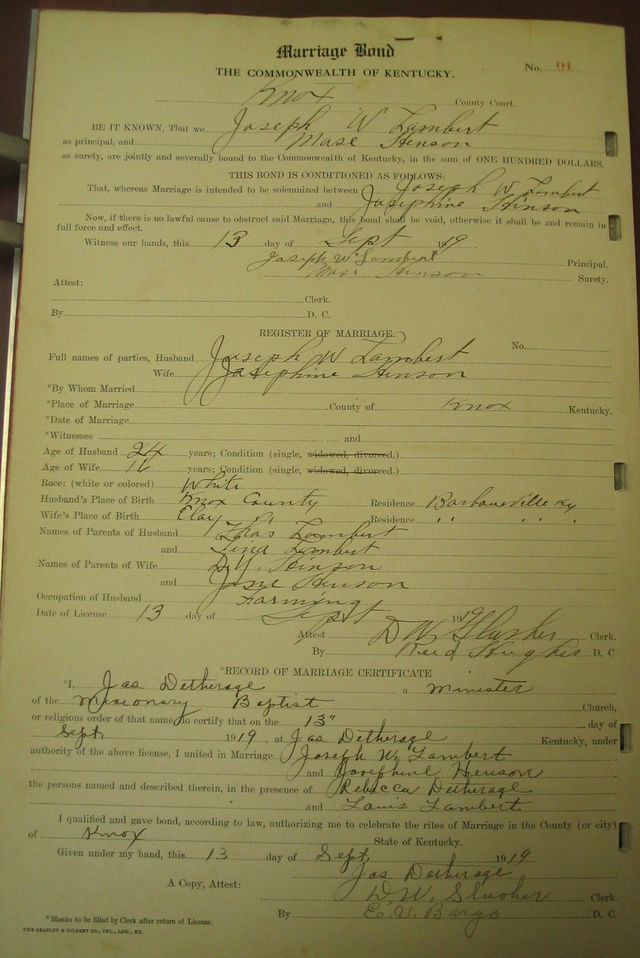 Marriage Bond
THE COMMONWEALTH OF KENTUCKY.
No. 91
Knox County Court.
BE IT KNOWN, That we Joseph W Lambert
as principal, and Mase Henson
as surety, are jointly and severally bound to the Commonwealth of Kentucky, in the sum of ONE HUNDRED DOLLARS.
THIS BOND IS CONDITIONED AS FOLLOWS:
That, whereas Marriage is intended to be solemnized between Joseph W. Lambert
and Josephine Hinson
Now, if there is no lawful cause to obstruct said Marriage, this bond shall be void, otherwise it shall be and remain in
full force and effect.
Witness our hands, this 13 day of Sept 1919
Joseph W. Lambert Principal.
Mase Henson Surety.
Attest:
Clerk.
By D. C.
REGISTER OF MARRIAGE.
No.
Full names of parties, Husband Joseph W Lambert
Wife Josephine Henson
*By Whom Married
*Place of Marriage County of Knox Kentucky.
*Date of Marriage
*Witnesses and
Age of Husband 24 years; Condition (single, widowed, divorced.)
Age of Wife years; Condition (single, widowed, divorced.)
Race: (white or colored) White
Husband's Place of Birth Knox County Residence Barbourville Ky
Wife's Place of Birth Clay " Residence " " "
Names of Parents of Husband Lambert
and Lambert
Names of Parents of Wife Henson
and Josie Henson
Occupation of Husband Farming
Date of License 13 day of Sept 1919
Attest D W Slusher Clerk.
By D. C
*RECORD OF MARRIAGE CERTIFICATE
*I, Jas Detherage a Minister
of the Missionary Baptist Church,
or religious order of that name, do certify that on the 13" day of
Sept. 1919, at Jas Detherage Kentucky, under
authority of the above license, I united in Marriage Joseph W. Lambert
and Josephine Henson
the persons named and described therein, in the presence of Rebecca Detherage
and Louis Lambert
I qualified and gave bond, according to law, authorizing me to celebrate the rites of Marriage in the County (or city)
of Knox State of Kentucky.
Given under my hand, this 13 day of Sept, 1919
Jas Detherage
A Copy, Attest: D. W. Slusher Clerk.
By E. V. Bargo D. C.
*Blanks to be filled by Clerk after return of License.
THE BRADLEY & GILBERT CO., INC., LOU., KY.